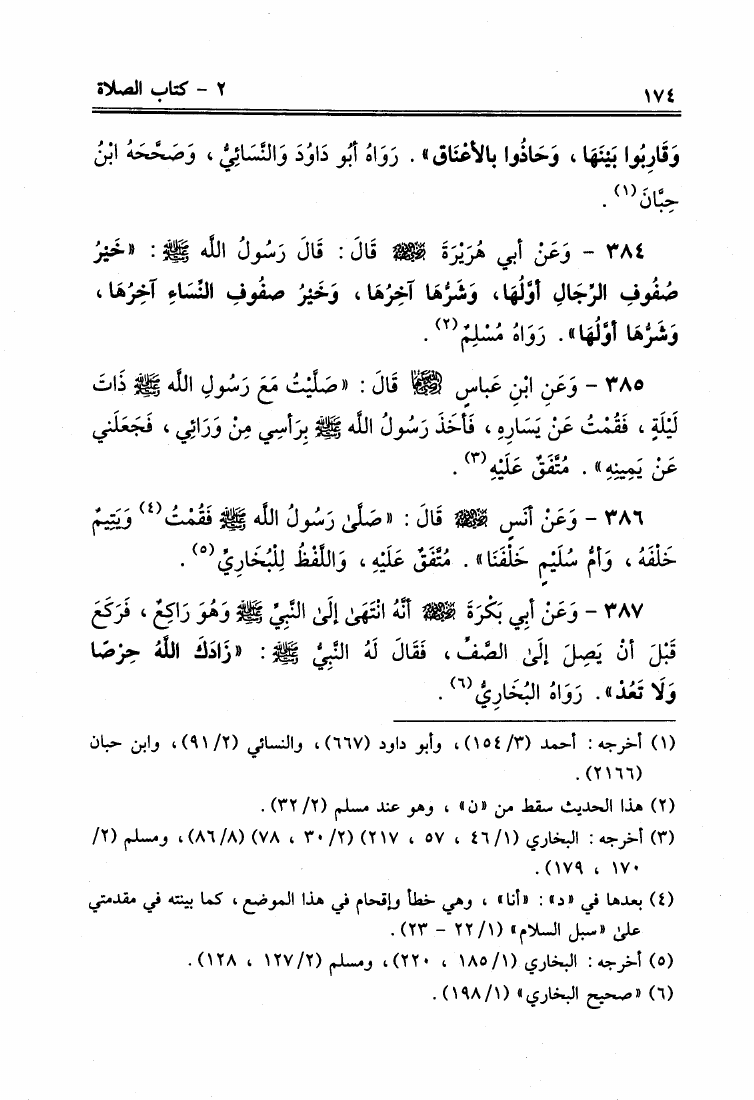 ١٧٤ ٢ - كتاب الصلاة
وَقَارِبُوا بَيْنَهَا ، وَحَاذُوا بالأَعْنَاق» . رَوَاهُ أبُو دَاوُدَ وَالنَّسَائِيُّ ، وَصَحَّحَهُ ابْنُ
حِبَّانَ(١) .
٣٨٤ - وَعَنْ أبي هُرَيْرَةَ ﷺ قَالَ : قَالَ رَسُولُ اللَّه ﷺ : «خَيْرُ
صُفُوفِ الرِّجَالِ أوَّلُهَا، وَشَرُّهَا آخِرُهَا ، وَخَيْرُ صفُوفِ النِّسَاءِ آخِرُهَا ،
وَشَرُّهَا أوَّلُهَا» . رَوَاهُ مُسْلِمٌ(٢) .
٣٨٥ - وَعَنِ ابْنِ عَباسٍ قَالَ : «صَلَّيْتُ مَعَ رَسُولِ اللَّه ﷺ ذَاتَ
لَيْلَةٍ ، فَقُمْتُ عَنْ يَسَارِهِ ، فَأَخَذَ رَسُولُ اللَّه ﷺ بِرَأسِي مِنْ وَرَائِي ، فَجَعَلَني
عَنْ يَمِينِهِ» . مُتَّفَقٌ عَلَيْهِ(٣) .
٣٨٦ - وَعَنْ أنَسٍ قَالَ : «صَلَّىٰ رَسُولُ اللَّه ﷺ فَقُمْتُ(٤) وَيَتِيمٌ
خَلْفَهُ ، وَأمُّ سُلَيْمٍ خَلْفَنَا» . مُتَّفَقٌ عَلَيْهِ ، وَاللَّفْظُ لِلْبُخَارِيِّ(٥) .
٣٨٧ - وَعَنْ أبِي بَكْرَةَ أنَّهُ انْتَهَىٰ إلَىٰ النَّبِيِّ ﷺ وَهُوَ رَاكِعٌ ، فَرَكَعَ
قَبْلَ أنْ يَصِلَ إلَىٰ الصَّفِّ ، فَقَالَ لَهُ النَّبِيُّ ﷺ : «زَادَكَ اللَّهُ حِرْصًا
وَلَا تَعُدْ» . رَوَاهُ البُخَارِيُّ(٦) .
(١) أخرجه : أحمد (٣/ ١٥٤) ، وأبو داود (٦٦٧) ، والنسائي (٢/ ٩١) ، وابن حبان
(٢١٦٦) .
(٢) هذا الحديث سقط من «ن» ، وهو عند مسلم (٢/ ٣٢) .
(٣) أخرجه : البخاري (١/ ٤٦ ، ٥٧ ، ٢١٧) (٢/ ٣٠ ، ٧٨) (٨/ ٨٦) ، ومسلم (٢/
١٧٠ ، ١٧٩) .
(٤) بعدها في «د» : «أنا» ، وهي خطأ وإقحام في هذا الموضع ، كما بينته في مقدمتي
علىٰ «سبل السلام» (١/ ٢٢ - ٢٣) .
(٥) أخرجه : البخاري (١/ ١٨٥ ، ٢٢٠) ، ومسلم (٢/ ١٢٧ ، ١٢٨) .
(٦) «صحيح البخاري» (١/ ١٩٨) .